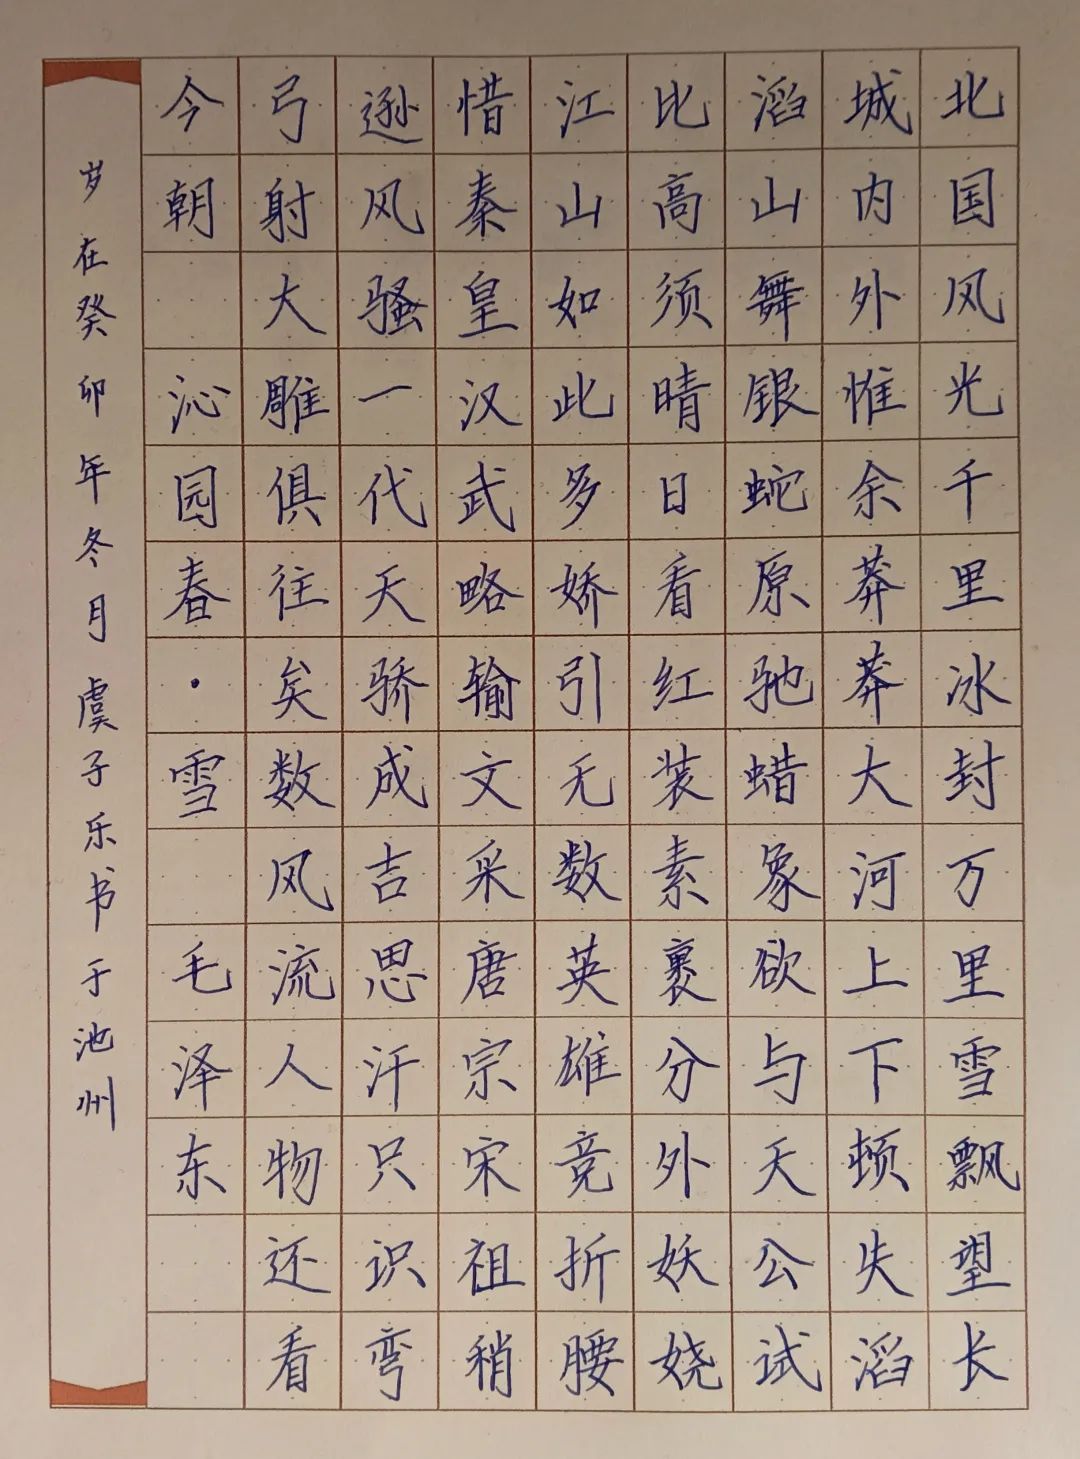 北国风光千里冰封万里雪飘望长
城内外惟余莽莽大河上下顿失滔
滔山舞银蛇原驰蜡象欲与天公试
比高须晴日看红装素裹分外妖娆
江山如此多娇引无数英雄竞折腰
惜秦皇汉武略输文采唐宗宋祖稍
逊风骚一代天骄成吉思汗只识弯
弓射大雕俱往矣数风流人物还看
今朝 沁园春·雪 毛泽东
岁在癸卯年冬月虞子乐书于池州